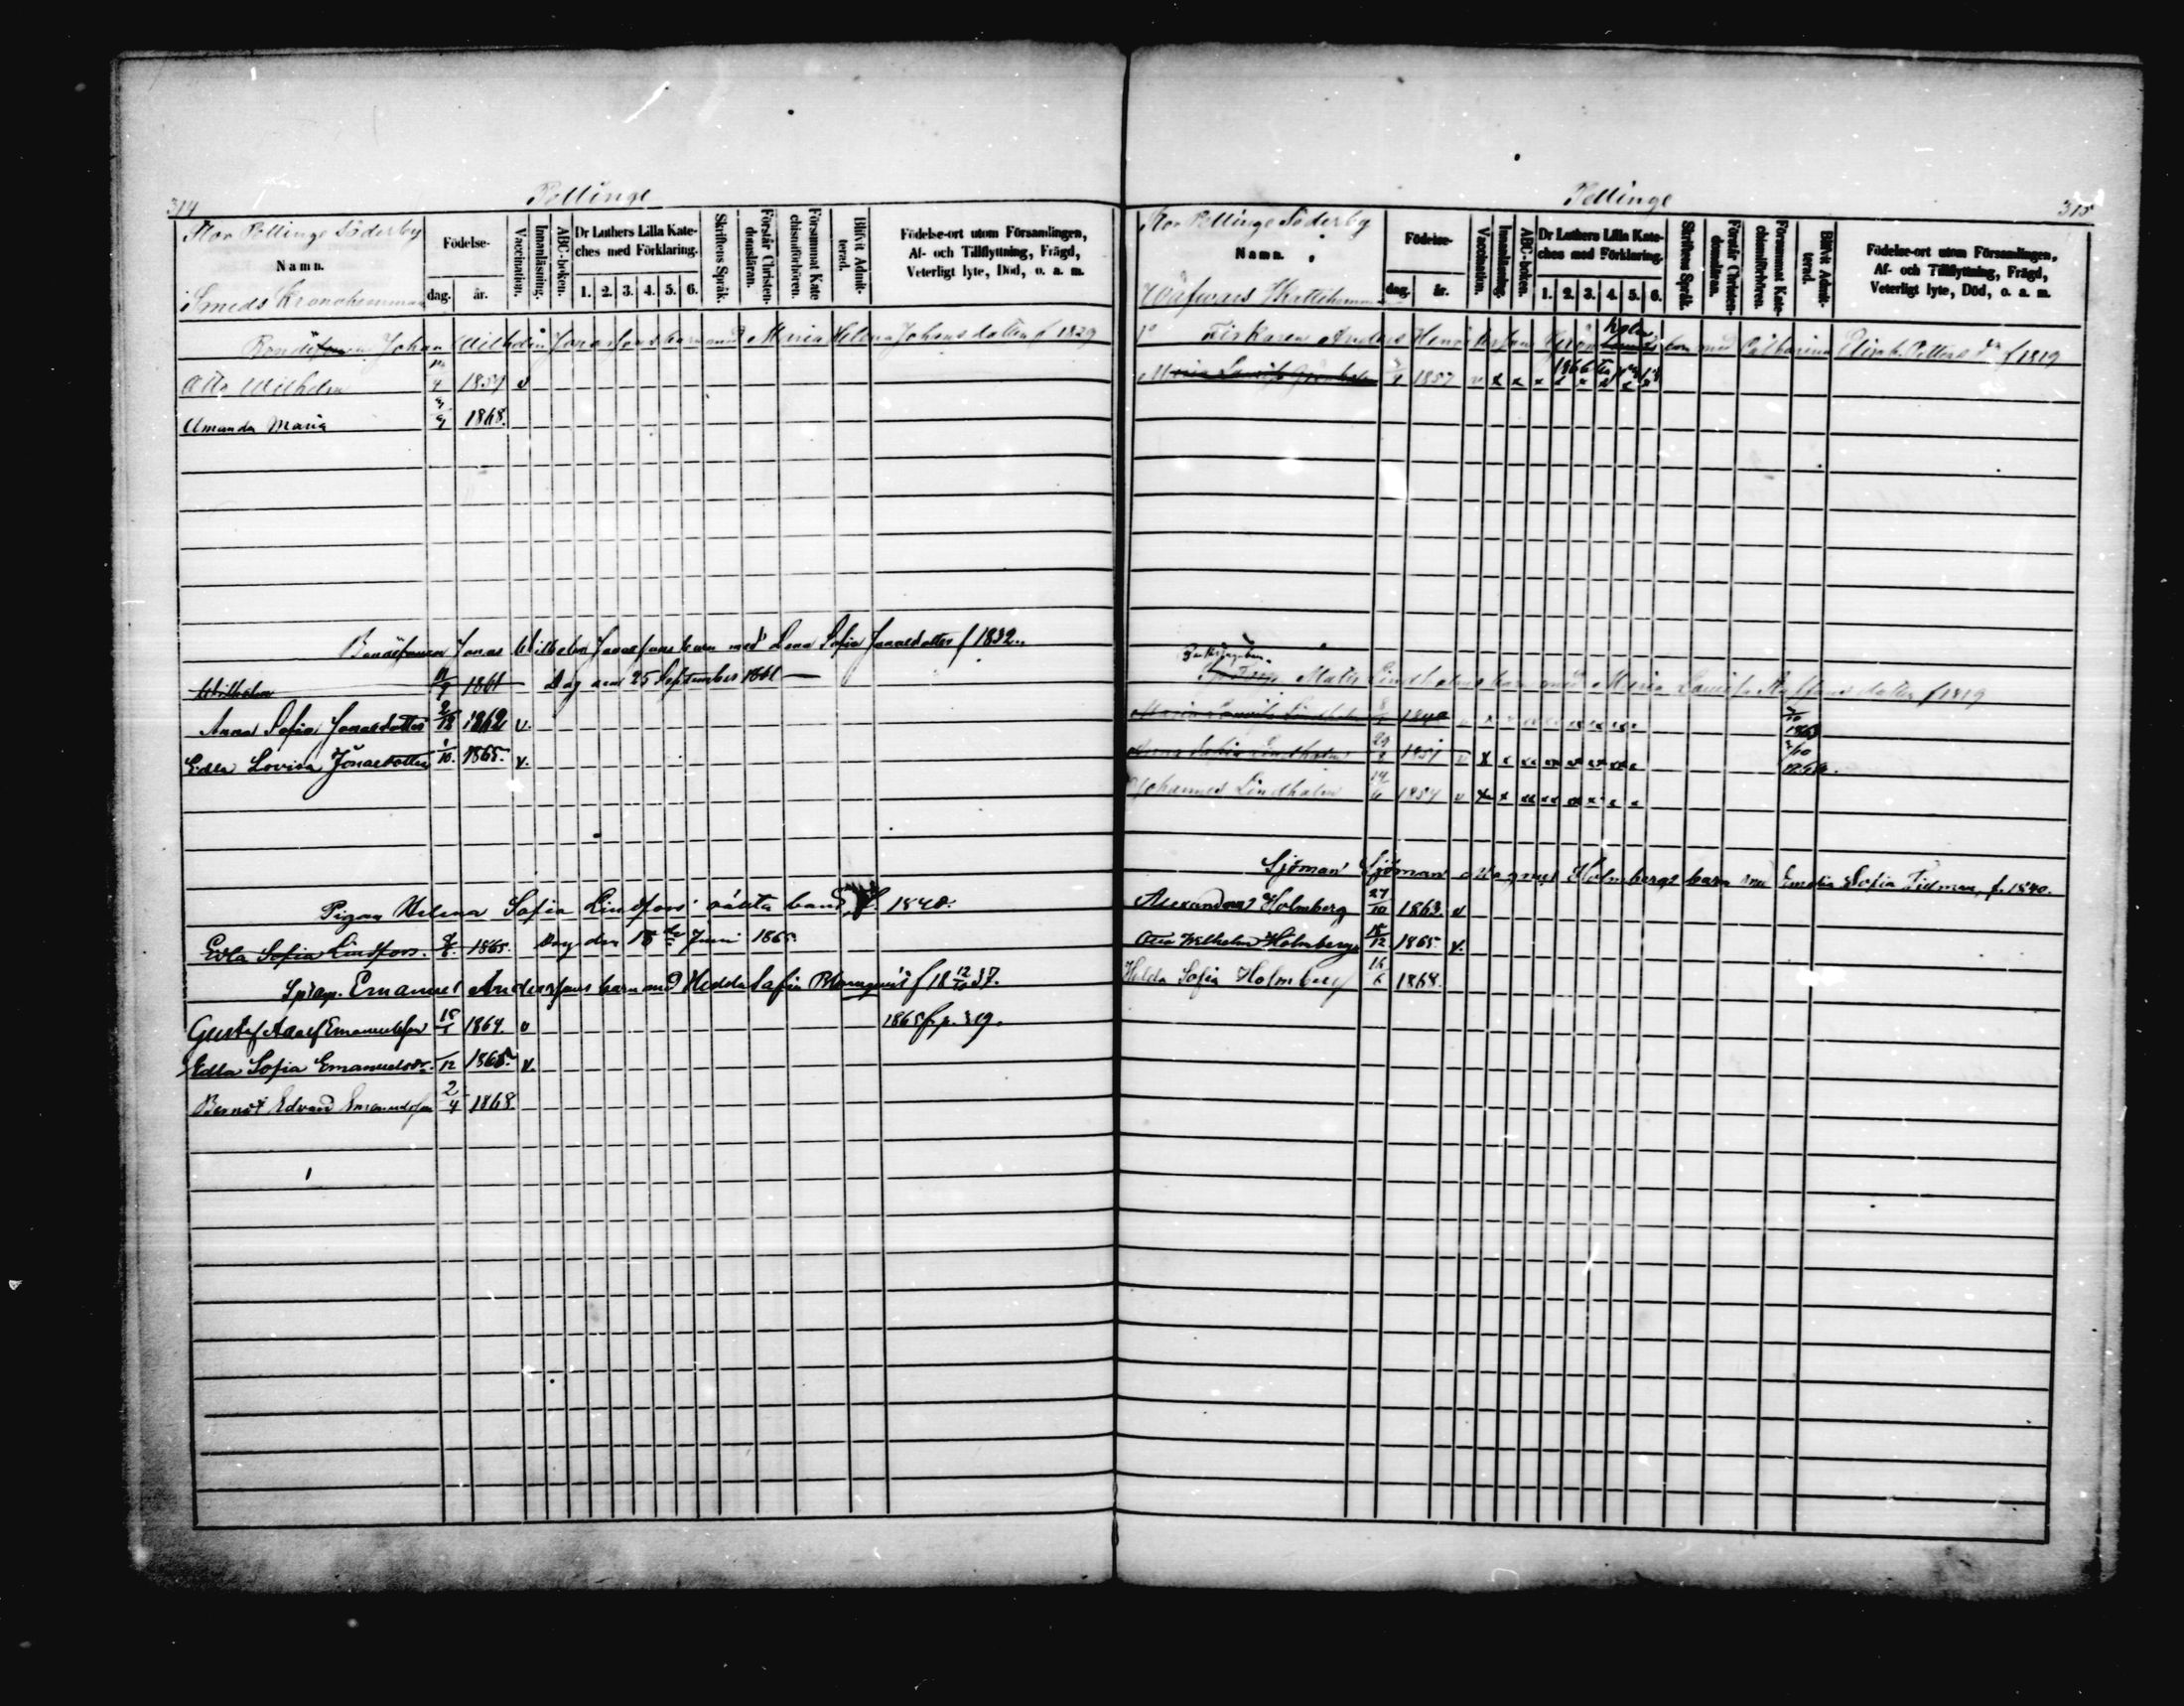 314
Pellinge
Stor Pellinge Söderby
Namn.
Smeds Kronohemman
Födelse-
dag.
år.
Vaccination.
Innanläsning.
ABC-boken.
Dr Luthers Lilla Kate-
ches med Förklaring.
1. 2. 3. 4. 5. 6.
Skriftens Språk.
Förstår Christen-
domsläran.
Försummat Kate
chismiförhören.
Blifvit Admit-
terad.
Födelse-ort utom Församlingen,
Af- och Tillflyttning, Frägd,
Veterligt lyte, Död, o. a. m.
Johan Wilhelm Jonassons barn med Maria Helena Johansdotter f 1829
Otto Wilhelm 1859 v
Amanda Maria 3/9 1868.
Bondesonen Jonas Wilhelm Jonassons barn med Lena Sofia Jonasdotter f 1832.
Wilhelm 11/9 1861 Dog den 25 September 1861
Anna Sofia Jonasdotter 2/12 1862 v.
Edla Lovisa Jonasdotter 1/10. 1865. v.
Pigan Helena Sofia Lindfors' oäkta barn, f. 1840.
Edla Sofia Lindfors. 1865. Dog den 15 de Juni 1865
Emanuel Anderssons barn med Hedda Sofia Blomqvist f 18 12/10 37.
Gustaf Adolf Emanuelsson 1864. v 1865 fr. p. 319.
Edla Sofia Emanuelsdr. /12 1865. v.
Berndt Edvard Emanuelsson 2/4 1868.
315
Pellinge
Stor Pellinge Söderby
Namn.
Födelse-
dag.
år.
Vaccination.
Innanläsning.
ABC-boken.
Dr Luthers Lilla Kate-
ches med Förklaring.
1. 2. 3. 4. 5. 6.
Skriftens Språk.
Förstår Christen-
domsläran.
Försummat Kate-
chismiförhören.
Blifvit Admit-
terad.
Födelse-ort utom Församlingen,
Af- och Tillflyttning, Frägd,
Veterligt lyte, Död, o. a. m.
holm
1o Fiskaren Anders Henrikssons barn med Catharina Elisab. Petters dr f 1819
Maria Lovisa Grönholm 1857 v x x x
Mats Lindholms barn med Maria Lovisa Staffansdotter f 1819
Maria Lovisa Lindholm 1848
1863
Anna Sofia Lindholm 29 1851 v x
Johannes Lindholm 14/6 1854 v x x
Sjöman Sjöman Magnus Holmbergs barn med Emelia Sofia Tidman, f. 1840.
Alexander Holmberg 27/10 1863. v
Otto Wilhelm Holmberg 18/12. 1865. v.
Hilda Sofia Holmberg 16/6 1868.